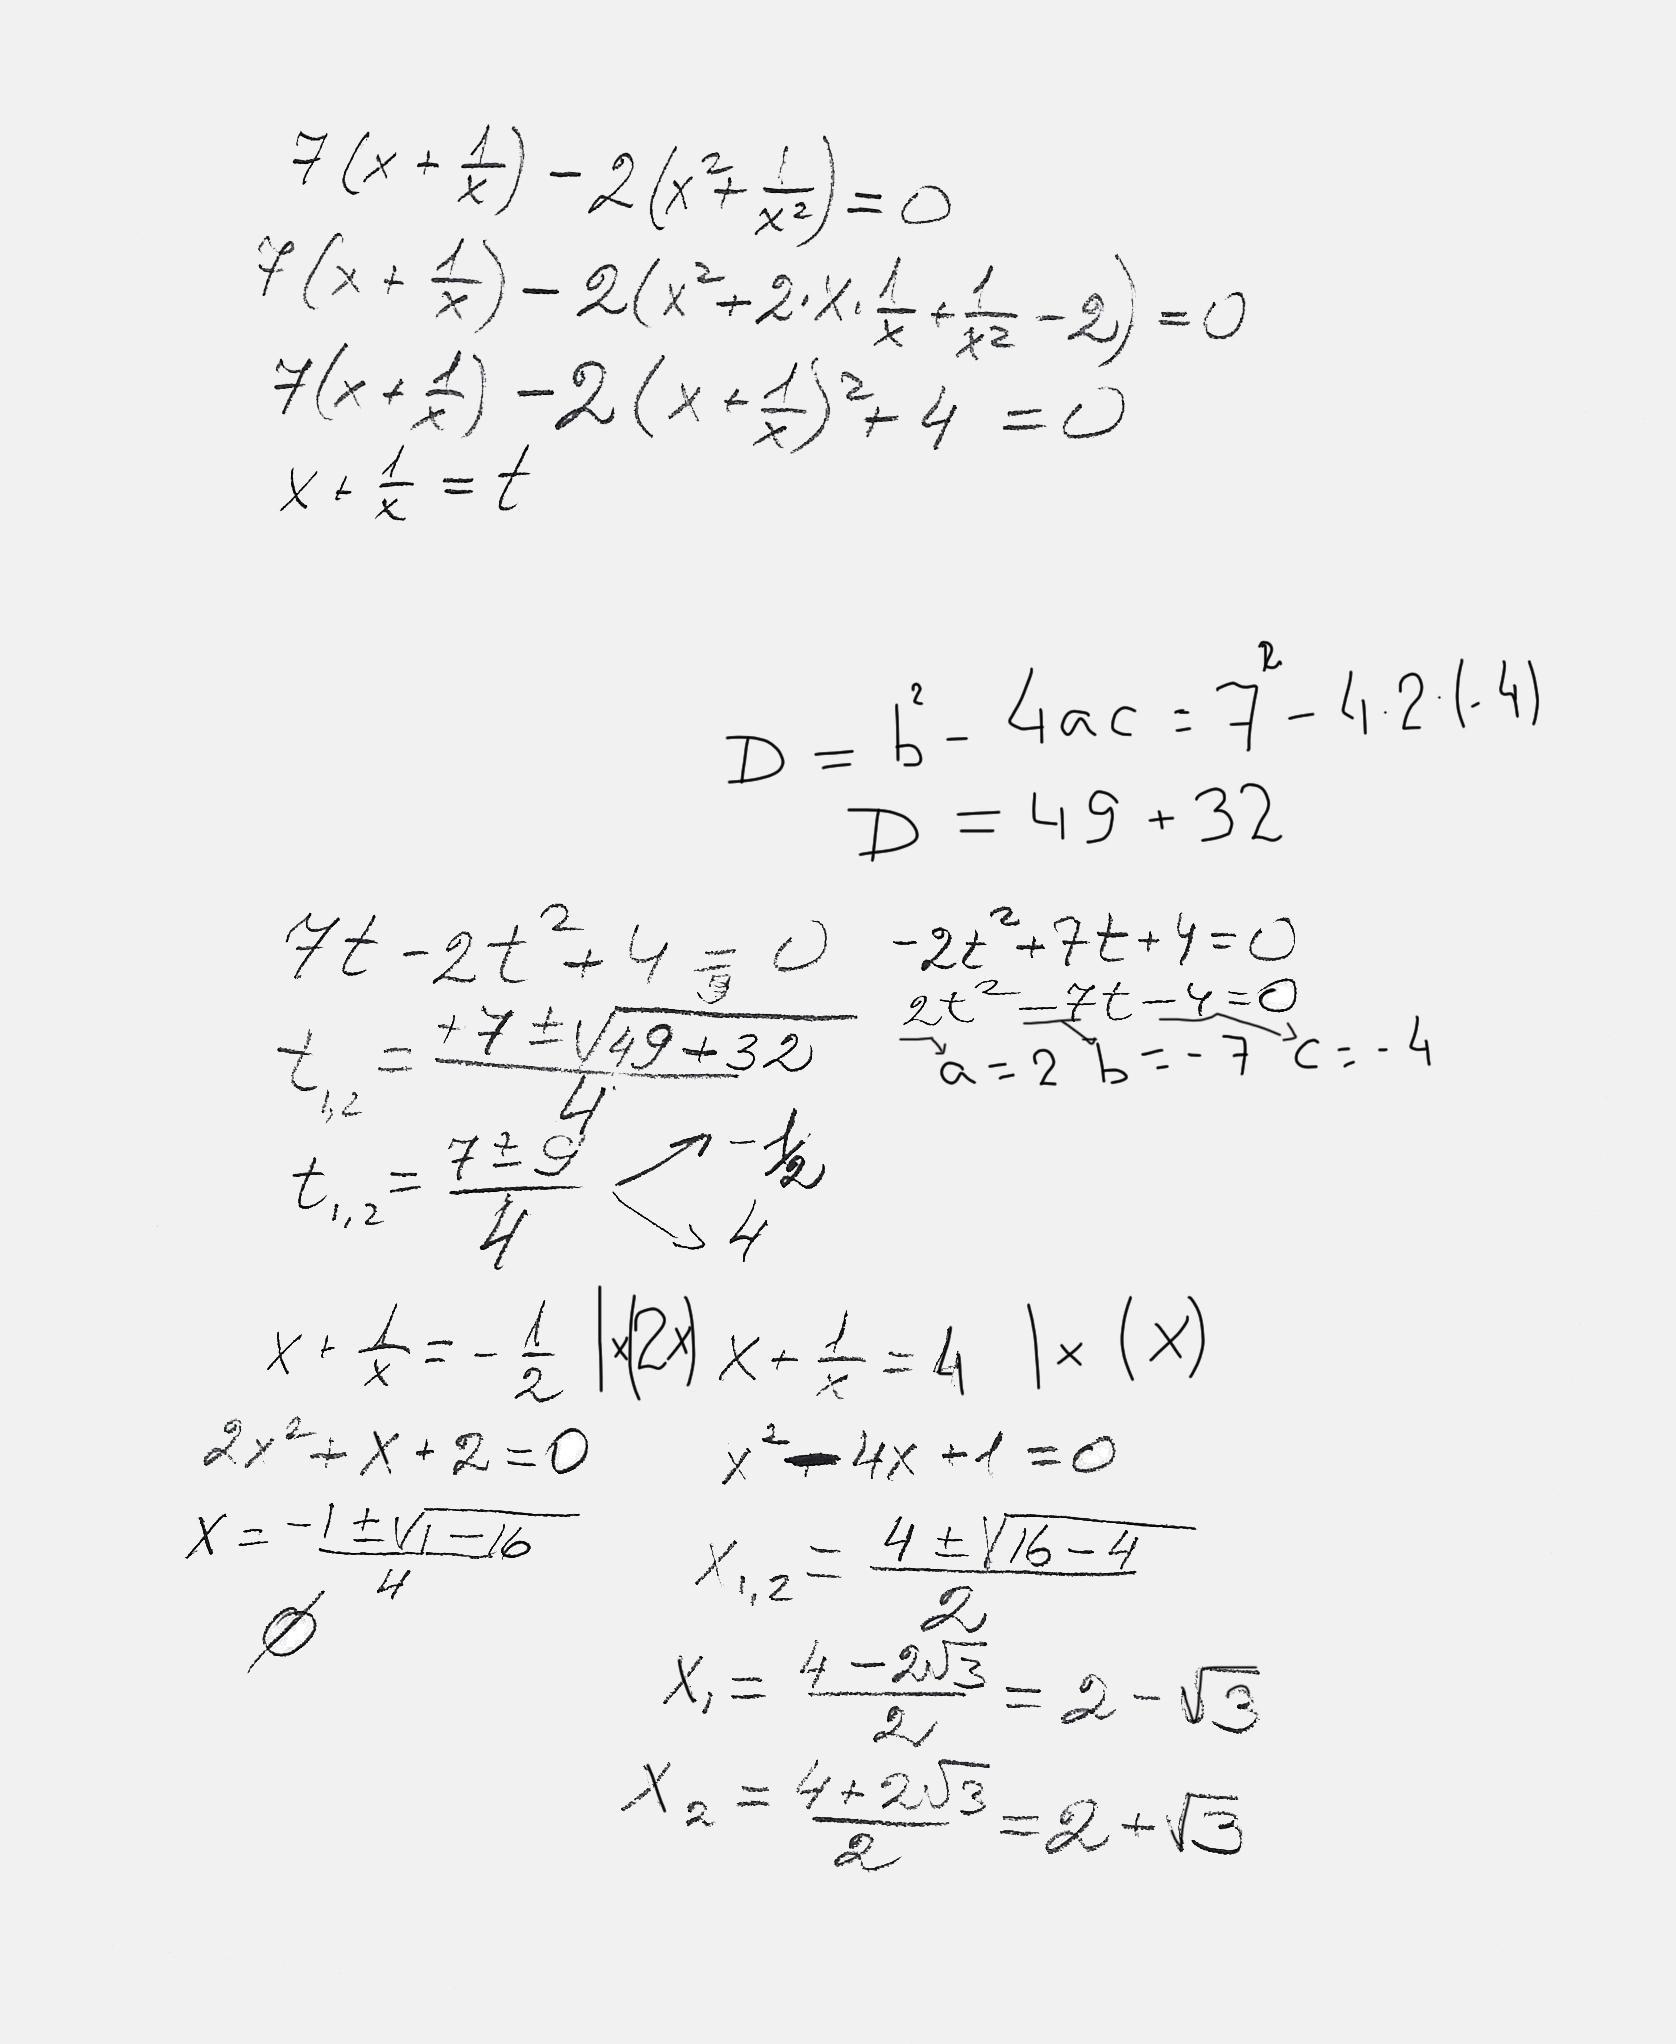 7(x + 1/x) - 2(x² + 1/x²) = 0
7(x + 1/x) - 2(x² + 2·x·1/x + 1/x² - 2) = 0
7(x + 1/x) - 2(x + 1/x)² + 4 = 0
x + 1/x = t
D = b² - 4ac = 7² - 4·2·(-4)
D = 49 + 32
7t - 2t² + 4 = 0
-2t² + 7t + 4 = 0
2t² - 7t - 4 = 0
a = 2 b = -7 c = -4
t₁,₂ = (+7 ± √(49 + 32))/4
t₁,₂ = (7 ± 9)/4 ↗ -1/2
↘ 4
x + 1/x = -1/2 |x(2x) x + 1/x = 4 |x (x)
2x² + x + 2 = 0 x² - 4x + 1 = 0
x = (-1 ± √(1 - 16))/4 x₁,₂ = (4 ± √(16 - 4))/2
∅
x₁ = (4 - 2√3)/2 = 2 - √3
x₂ = (4 + 2√3)/2 = 2 + √3